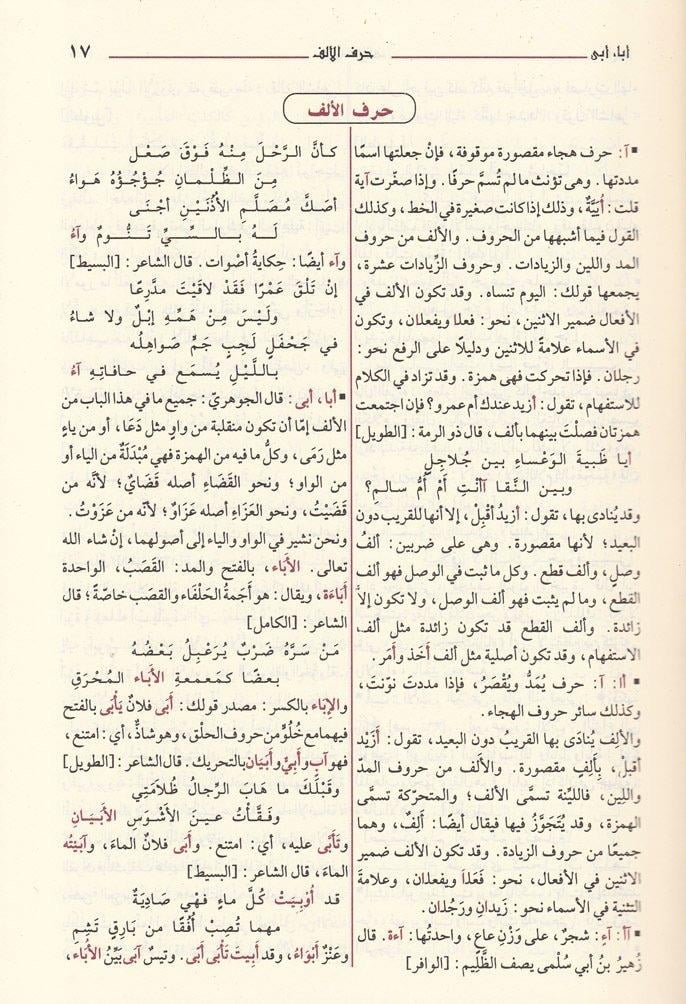 أبا، أبى
حرف الألف
١٧
حرف الألف
▪ آ: حرف هجاء مقصورة موقوفة، فإنْ جعلتها اسمًا
مددتها. وهى تؤنث ما لم تُسمَّ حرفًا. وإذا صغّرت آية
قلت: أُيَيَّةٌ، وذلك إذا كانت صغيرة في الخط، وكذلك
القول فيما أشبهها من الحروف. والألف من حروف
المد واللين والزيادات. وحروف الزّيادات عشرة،
يجمعها قولك: اليوم تنساه. وقد تكون الألف في
الأفعال ضمير الاثنين، نحو: فعلا ويفعلان، وتكون
في الأسماء علامةً للاثنين ودليلًا على الرفع نحو:
رجلان. فإذا تحركت فهى همزة. وقد تزاد في الكلام
للاستفهام، تقول: أزيد عندك أم عمرو؟ فإن اجتمعت
همزتان فصلْتَ بينهما بألف، قال ذو الرمة: [الطويل]
أيا ظَبيةَ الوَعْساءِ بين جُلاجِلٍ
وبين النَّقا آأنْتِ أمْ أُمُّ سالمِ؟
وقد يُنادَى بها، تقول: أزيدُ أقْبِلْ، إلا أنها للقريب دون
البعيد؛ لأنها مقصورة. وهى على ضربين: ألفُ
وصلٍ، وألف قطع. وكل ما ثبت في الوصل فهو ألف
القطع، وما لم يثبت فهو ألف الوصل، ولا تكون إلاَّ
زائدة. وألف القطع قد تكون زائدة مثل ألف
الاستفهام، وقد تكون أصلية مثل ألف أَخَذ وأَمَر.
▪ أا: آ: حرف يُمَدُّ ويُقْصَرُ، فإذا مددتَ نوَّنتَ،
وكذلك سائر حروف الهجاء.
والألف يُنادَى بها القريبُ دون البعيد، تقول: أَزَيْد
أقبلْ، بِأَلِفٍ مقصورة. والألف من حروف المدّ
واللِين، فاللَيِّنة تسمَّى الألف؛ والمتحرّكة تسمَّى
الهمزة، وقد يُتَجَوَّزُ فيها فيقال أيضًا: أَلِفٌ، وهما
جميعًا من حروف الزيادة. وقد تكون الألف ضمير
الاثنين في الأفعال، نحو: فَعَلَا ويفعلان، وعلامةَ
التثنية في الأسماء نحو: زَيدانِ ورَجُلان.
▪ أأ: آء: شجرٌ، على وَزْنِ عاعٍ، واحدتُها: آءة. قال
زُهيرُ بنُ أبي سُلْمى يصف الظَّلِيم: [الوافر]
كأنَّ الرَّحْلَ مِنْهُ فَوْقَ صَعْلٍ
مِنَ الظِّلْمانِ جُؤْجُؤُهُ هَواءُ
أصَكَّ مُصَلَّمِ الأُذُنَيْنِ أجْنَى
لَهُ بالسِّيِّ تَنُّومٌ وآءُ
وآء أيضًا: حِكايةُ أصْوات. قال الشاعر: [البسيط]
إنْ تَلْقَ عَمْرًا فَقَدْ لاقَيْتَ مدَّرِعًا
ولَيْسَ مِنْ هَمِّهِ إبْلٌ ولا شاءُ
في جَحْفَلٍ لَجِبٍ جَمٍّ صَواهِلُه
باللَّيْلِ يُسْمَع في حافاتِهِ آءُ
▪ أبا، أبى: قال الجوهريّ: جميع ما في هذا الباب من
الألف إمّا أن تكون منقلبة من واوٍ مثل دَعَا، أو من ياءٍ
مثل رَمَى، وكلُّ ما فيه من الهمزة فهي مُبْدَلَةٌ من الياء أو
من الواو؛ ونحو القَضَاءِ أصله قَضَايٌ؛ لأنَّه من
قَضَيْتُ، ونحو العَزَاءِ أصله عَزَاوٌ؛ لأنّه من عَزَوْتُ.
ونحن نشير في الواو والياء إلى أصولهما، إنْ شاء الله
تعالى. الأَبَاء، بالفتح والمد: القَصَبُ، الواحدة
أَبَاءَة، ويقال: هو أَجَمةُ الحَلْفَاء والقصَب خاصّة؛ قال
الشاعر: [الكامل]
مَنْ سَرَّهُ ضَرْبٌ يُرَعْبِلُ بَعْضُهُ
بعضًا كمَعمعةِ الأَباءِ المُحْرَقِ
والإبَاء بالكسر: مصدر قولك: أَبَى فلانٌ يَأْبَى بالفتح
فيهما مع خُلُوٍّ من حروف الحلْق، وهو شاذٌّ، أي: امتنع،
فهو آبٍ وأَبِيٌّ وأَبَيَان بالتحريك. قال الشاعر: [الطويل]
وقَبْلَكَ ما هَابَ الرِّجالُ ظُلَامَتِي
وفَقَّأتُ عينَ الأَشْوَسِ الأَبَيَانِ
وتَأَبَّى عليه، أي: امتنع. وأَبَى فلانٌ الماءَ، وآبَيْتُه
الماءَ، قال الشاعر: [البسيط]
قد أُوبِيَتْ كُلَّ ماءٍ فهْي صَادِيَةٌ
مهما تُصِبْ أُفُقًا من بَارِقٍ تَشِمِ
وعَنْزٌ أَبْوَاءُ، وقد أَبِيتَ تَأْبَى أَبَى. وتيسٌ آبَى بَيِّنُ الأَبَاءِ،